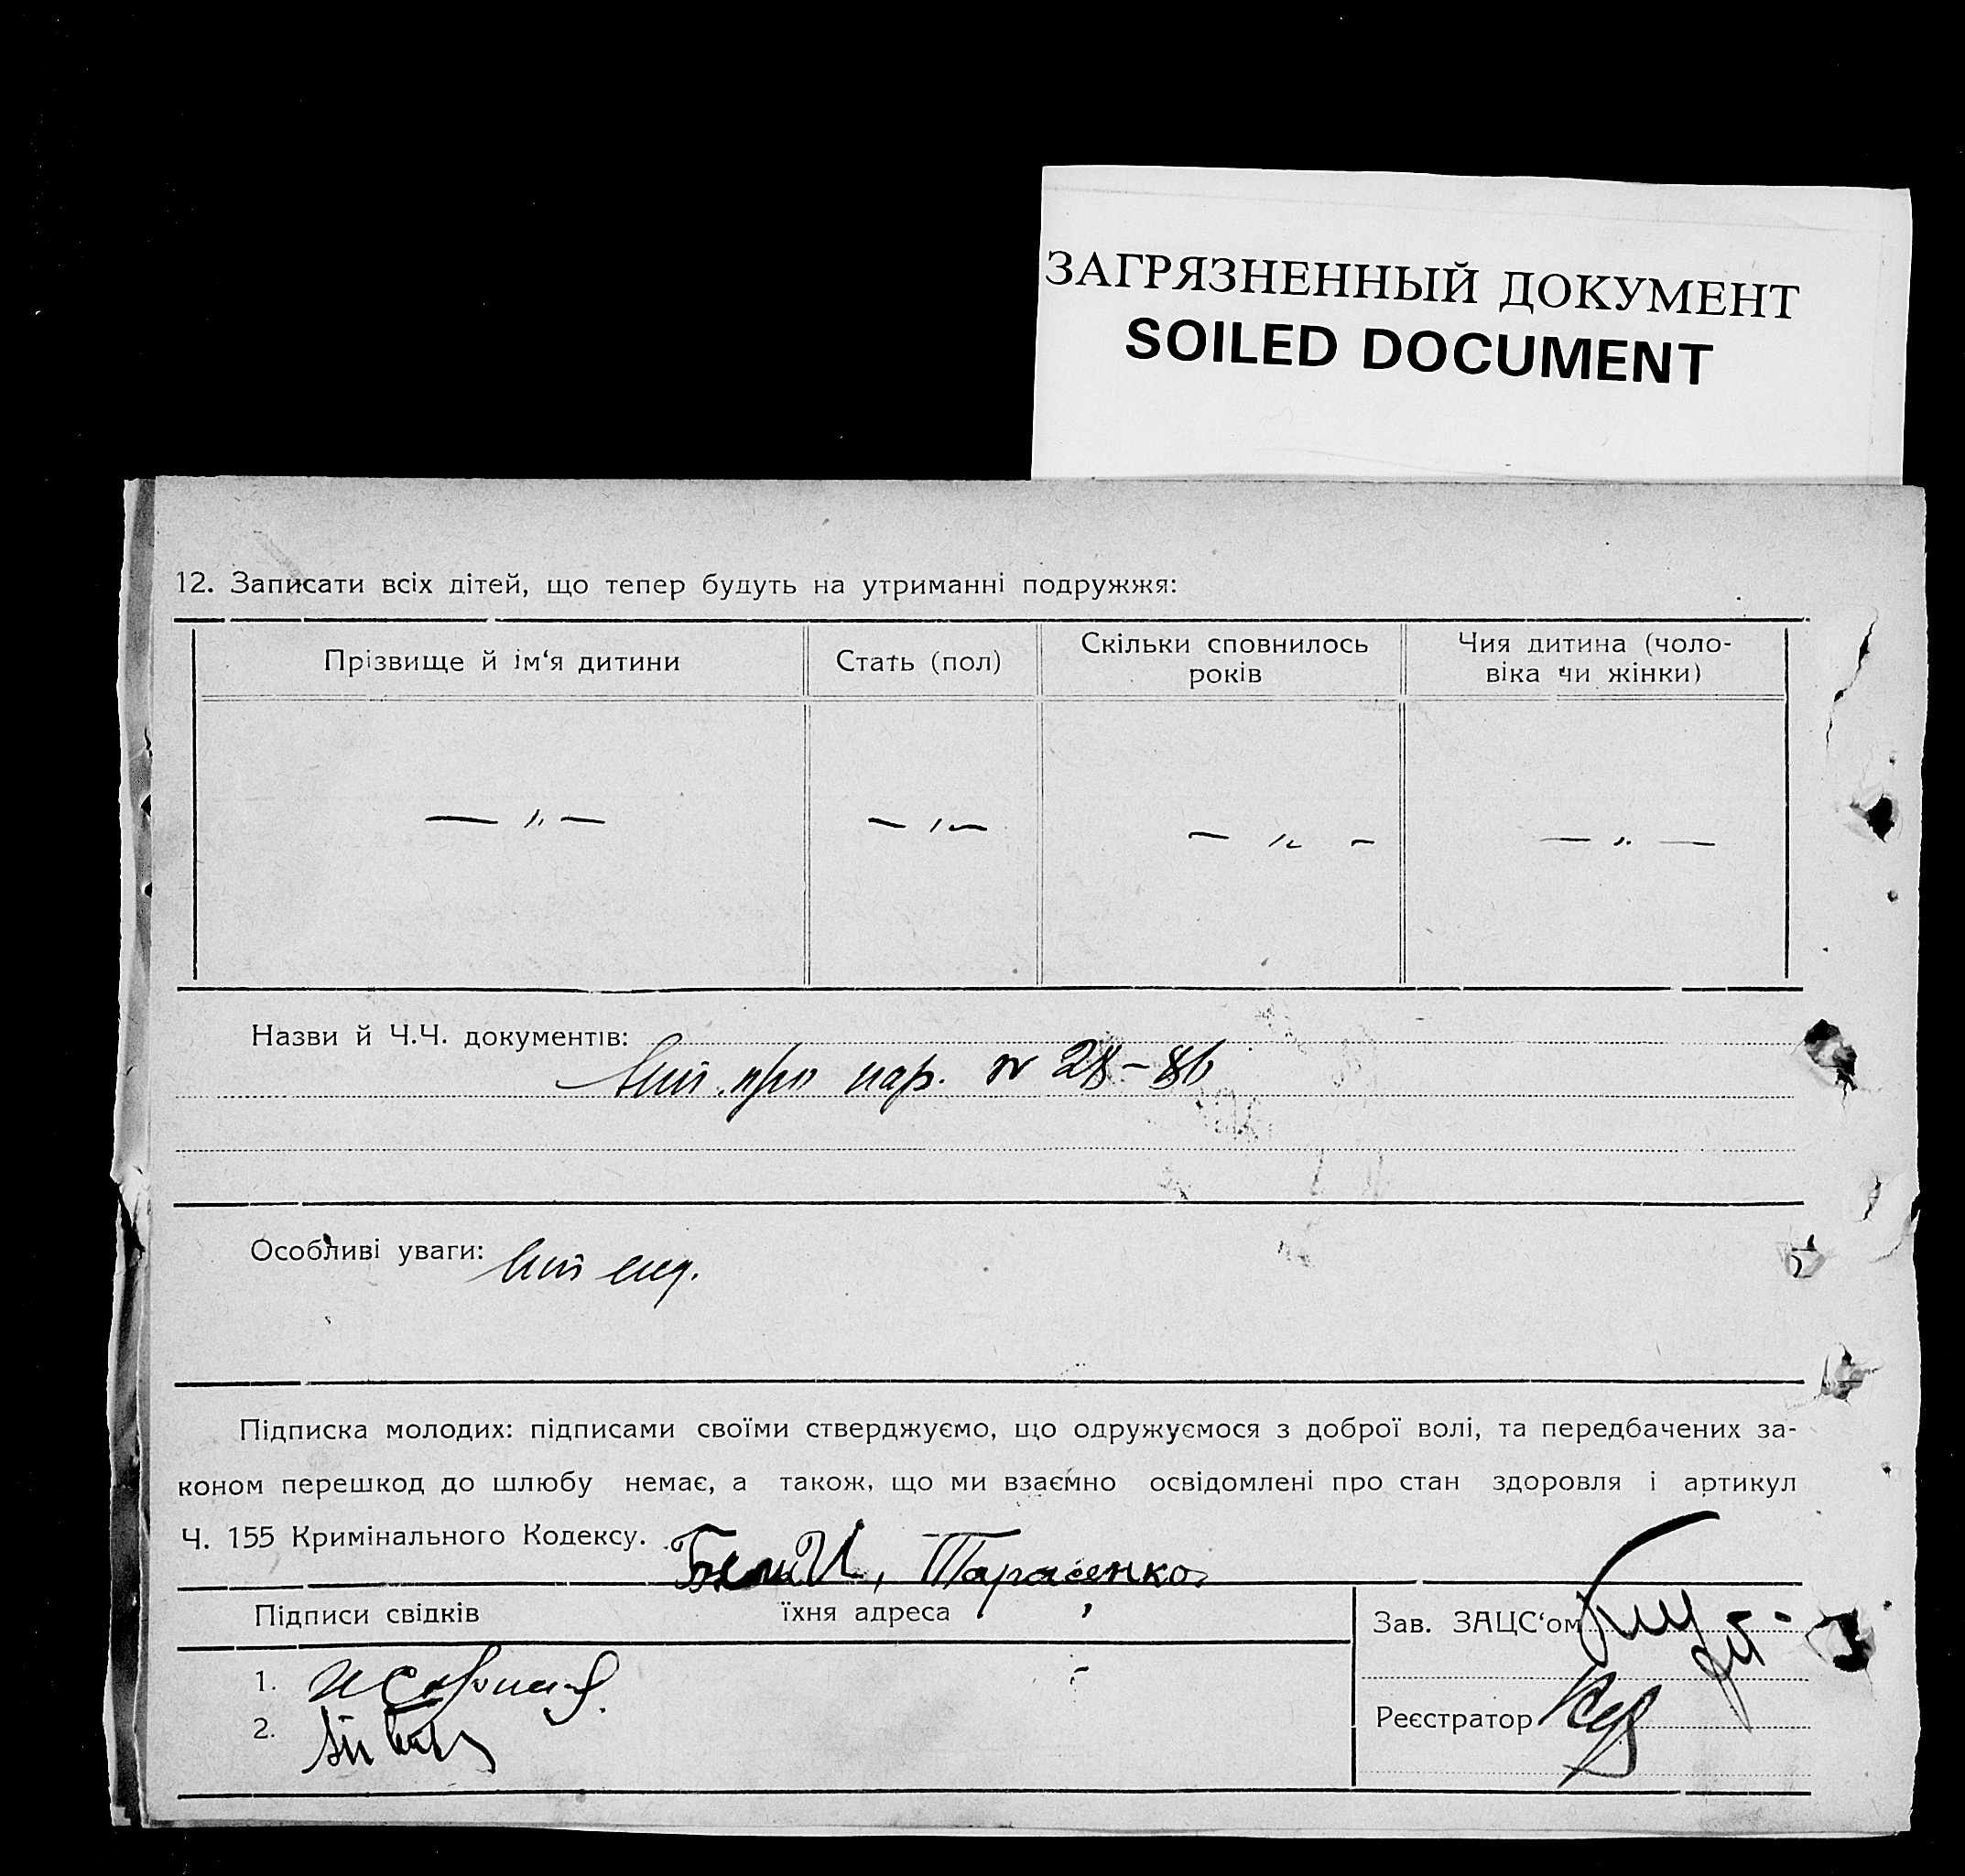 ЗАГРЯЗНЕННЫЙ ДОКУМЕНТ
SOILED DOCUMENT
12. Записати всіх дітей, що тепер будуть на утриманні подружжя:
Прізвище й ім‘я дитини
Стать (пол)
Скільки сповнилось
років
Чия дитина (чоло-
віка чи жінки)
— „ —
— „ —
— „ —
— „ —
Назви й Ч.Ч. документів:
про нар. № 28–86
Особливі уваги:
Підписка молодих: підписами своїми стверджуємо, що одружуємося з доброї волі, та передбачених за-
коном перешкод до шлюбу немає, а також, що ми взаємно освідомлені про стан здоровля і артикул
Ч. 155 Кримінального Кодексу.
Тарасенко
Підписи свідків їхня адреса
Зав. ЗАЦС‘ом
1.
2.
Реєстратор